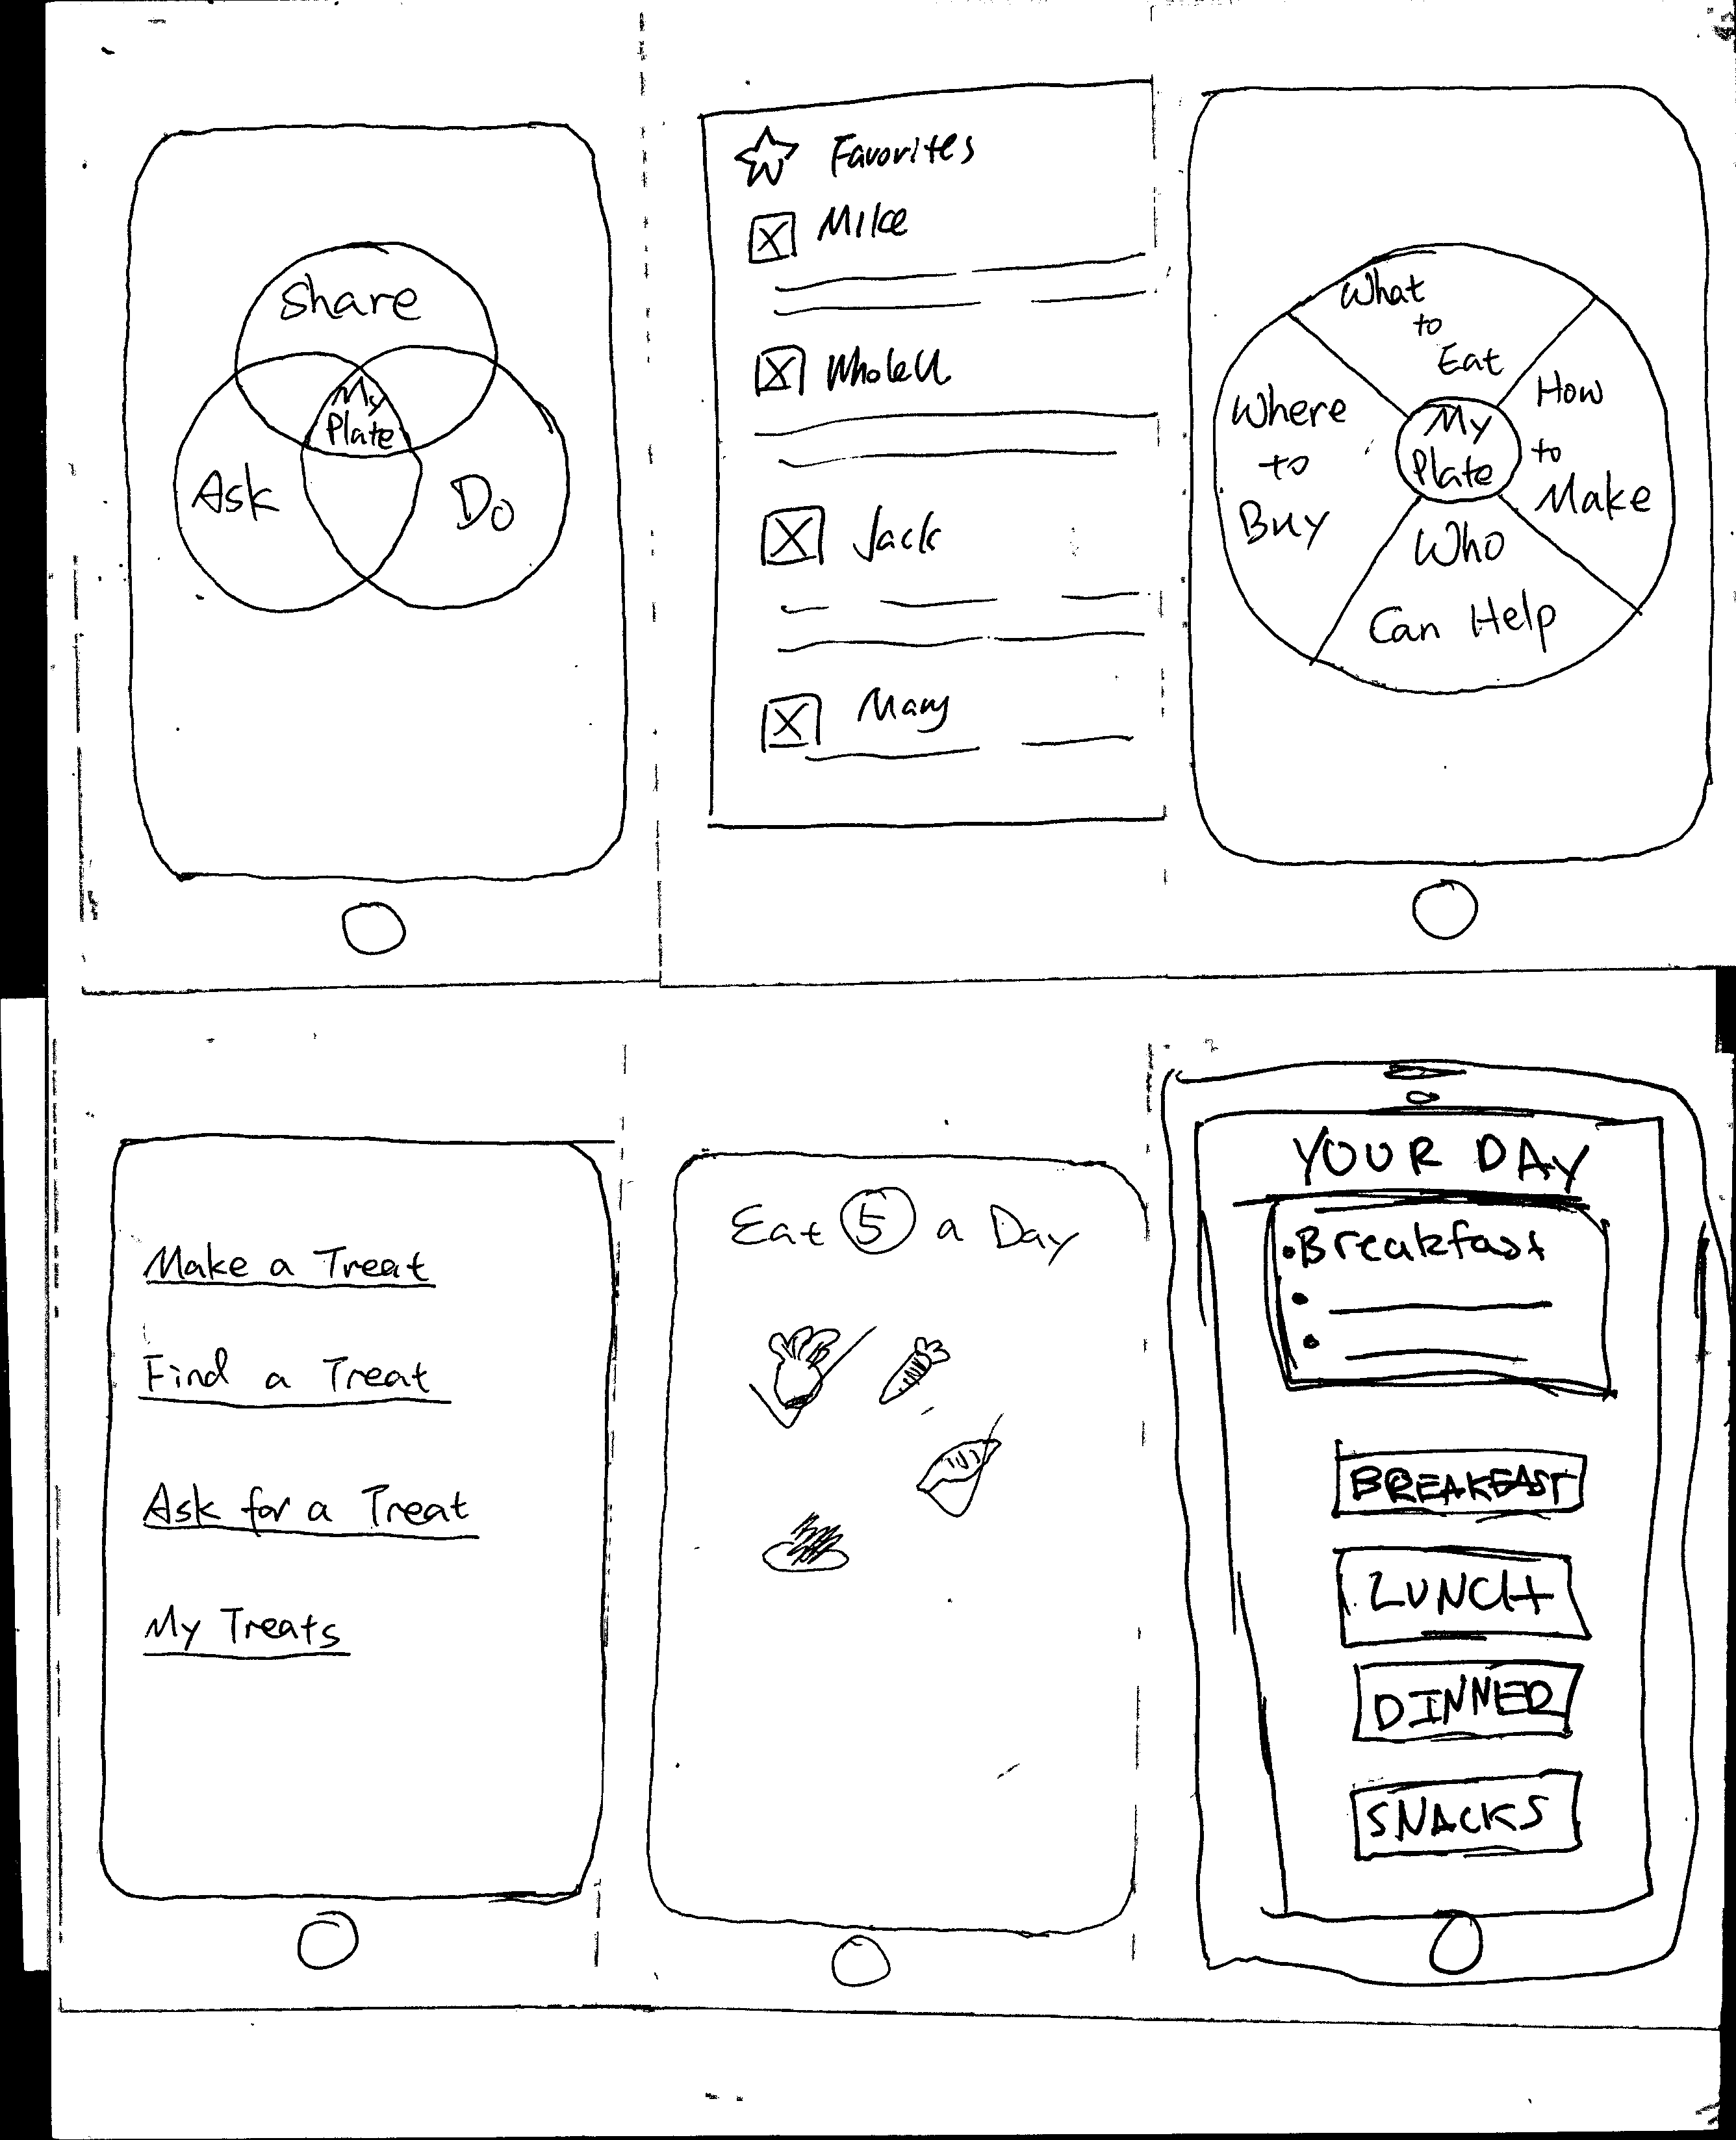 Share
My
Plate
Ask
Do
Favorites
Mike
Jack
Mary
What
to
Eat
Where
to
Buy
My
Plate
How
to
Make
Who
Can Help
Make a Treat
Find a Treat
Ask for a Treat
My Treats
Eat 5 a Day
YOUR DAY
Breakfast
BREAKFAST
LUNCH
DINNER
SNACKS